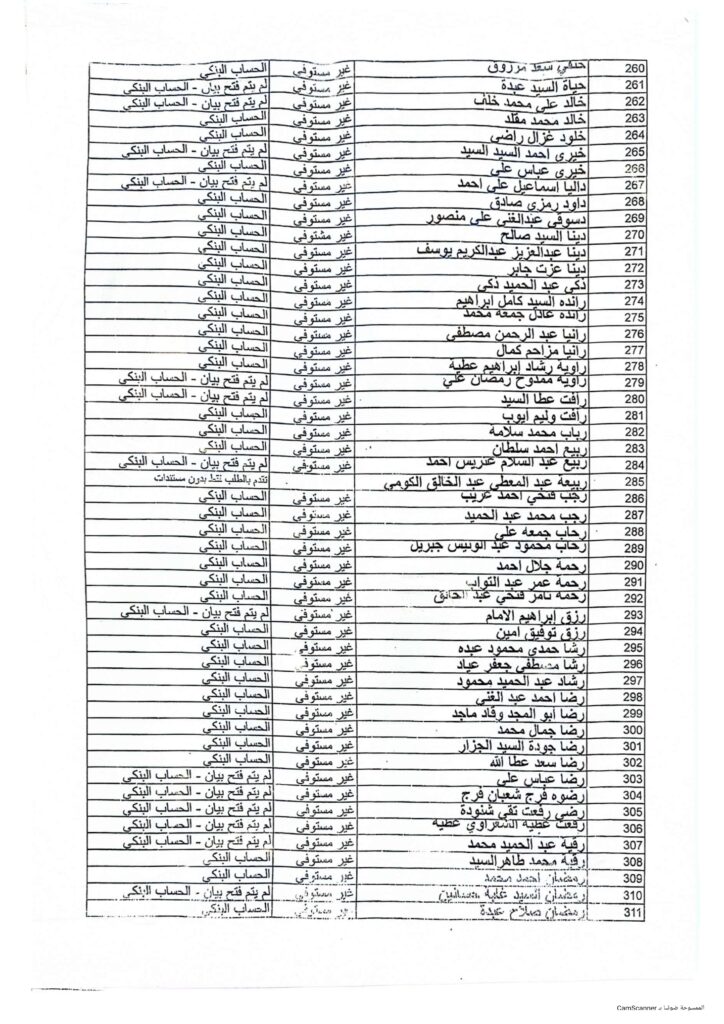 260 حنفي سعد مرزوق غير مستوفى الحساب البنكى
261 حياة السيد عبدة غير مستوفى لم يتم فتح بيان - الحساب البنكى
262 خالد على محمد خلف غير مستوفى لم يتم فتح بيان - الحساب البنكى
263 خالد محمد مقلد غير مستوفى الحساب البنكى
264 خلود غزال راضى غير مستوفى الحساب البنكى
265 خيرى احمد السيد السيد غير مستوفى لم يتم فتح بيان - الحساب البنكى
266 خيرى عباس على غير مستوفى الحساب البنكى
267 داليا اسماعيل على احمد غير مستوفى لم يتم فتح بيان - الحساب البنكى
268 داود رمزى صادق غير مستوفى الحساب البنكى
269 دسوقى عبدالغنى على منصور غير مستوفى الحساب البنكى
270 دينا السيد صالح غير مستوفى الحساب البنكى
271 دينا عبدالعزيز عبدالكريم يوسف غير مستوفى الحساب البنكى
272 دينا عزت جابر غير مستوفى الحساب البنكى
273 ذكى عبد الحميد ذكى غير مستوفى الحساب البنكى
274 رانده السيد كامل ابراهيم غير مستوفى الحساب البنكى
275 رانده عادل جمعه محمد غير مستوفى الحساب البنكى
276 رانيا عبد الرحمن مصطفى غير مستوفى الحساب البنكى
277 رانيا مزاحم كمال غير مستوفى الحساب البنكى
278 راوية رشاد إبراهيم عطية غير مستوفى الحساب البنكى
279 راوية ممدوح رمضان على غير مستوفى لم يتم فتح بيان - الحساب البنكى
280 رافت عطا السيد غير مستوفى لم يتم فتح بيان - الحساب البنكى
281 رافت وليم أيوب غير مستوفى الحساب البنكى
282 رباب محمد سلامة غير مستوفى الحساب البنكى
283 ربيع احمد سلطان غير مستوفى الحساب البنكى
284 ربيع عبد السلام عتريس احمد غير مستوفى لم يتم فتح بيان - الحساب البنكى
285 ربيعة عبد المعطي عبد الخالق الكومى تقدم بالطلب فقط بدون مستندات
286 رجب فتحي احمد غريب غير مستوفى الحساب البنكى
287 رجب محمد عبد الحميد غير مستوفى الحساب البنكى
288 رحاب جمعه على غير مستوفى الحساب البنكى
289 رحاب محمود عبد الونيس جبريل غير مستوفى الحساب البنكى
290 رحمة جلال احمد غير مستوفى الحساب البنكى
291 رحمة عمر عبد التواب غير مستوفى الحساب البنكى
292 رحمه تامر فتحي عبد الخالق غير مستوفى الحساب البنكى
293 رزق إبراهيم الامام غير مستوفى لم يتم فتح بيان - الحساب البنكى
294 رزق توفيق امين غير مستوفى الحساب البنكى
295 رشا حمدى محمود عبده غير مستوفى الحساب البنكى
296 رشا مصطفى جعفر عياد غير مستوفى الحساب البنكى
297 رشاد عبد الحميد محمود غير مستوفى الحساب البنكى
298 رضا احمد عبد الغنى غير مستوفى الحساب البنكى
299 رضا أبو المجد وفاد ماجد غير مستوفى الحساب البنكى
300 رضا جمال محمد غير مستوفى الحساب البنكى
301 رضا جودة السيد الجزار غير مستوفى الحساب البنكى
302 رضا سعد عطا الله غير مستوفى الحساب البنكى
303 رضا عباس على غير مستوفى لم يتم فتح بيان - الحساب البنكى
304 رضوه فرج شعبان فرج غير مستوفى لم يتم فتح بيان - الحساب البنكى
305 رضي رفعت تقى شنودة غير مستوفى لم يتم فتح بيان - الحساب البنكى
306 رفعت عطيه الشعراوي عطيه غير مستوفى لم يتم فتح بيان - الحساب البنكى
307 رقية عبد الحميد محمد غير مستوفى لم يتم فتح بيان - الحساب البنكى
308 رقية محمد طاهر السيد غير مستوفى الحساب البنكى
309 رمضان احمد محمد غير مستوفى الحساب البنكى
310 رمضان السيد عطية غير مستوفى لم يتم فتح بيان - الحساب البنكى
311 رمضان صلاح عبدة غير مستوفى الحساب البنكى
الممسوحة ضوئيا بـ CamScanner